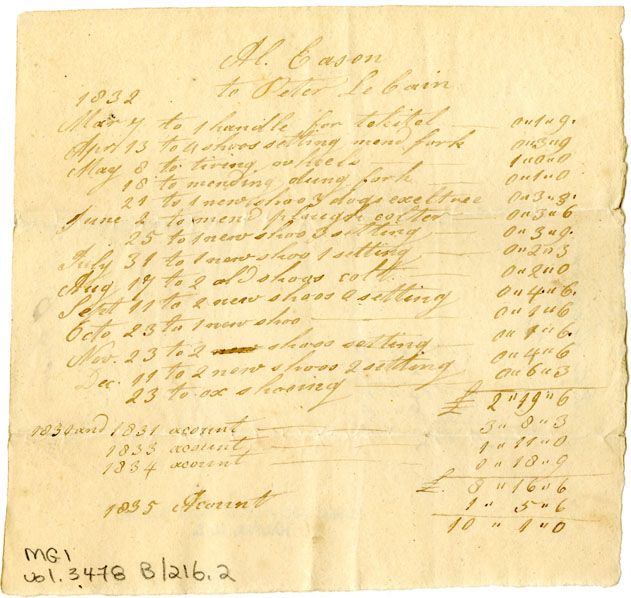 Al. Eason
to Peter Le Cain
1832
Mar 7 to 1 handle for — 0"1"9.
Apr 13 to 4 shoos setting mend fork 0"3"9
May 8 to tiring wheels — 1"0"0
18 to mending dung fork — 0"1"0
21 to 1 new shoo 3 dogs exeltree 0"3"
June 2 to mend — 0"3"6
25 to 1 new shoo 3 setting — 0"3"9.
July 31 to 1 new shoo 1 setting — 0"2"3
Aug 17 to 2 old shoos colt — 0"2"0
Sept 11 to 2 new shoos 2 setting — 0"4"6.
Octo 23 to 1 new shoo — 0"1"6
Nov. 23 to 2 shoos setting — 0"1"6.
Dec. 11 to 2 new shoos 2 setting 0"4"6
23 to ox shooing — 0"6"3
£ 2"19"6
1830 and 1831 acount — 3"8"3
1833 acount — 1"11"0
1834 acount — 0"18"9
£. 8"16"6
1835 Acount 1"5"6
10"1"0
MG1
vol. 3478 B/216.2